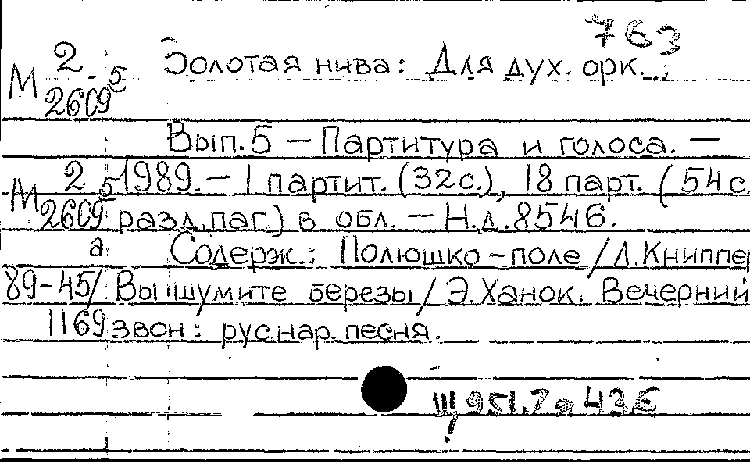 763
М 2 5 Золотая нива: Для дух. орк...;
2609
Вып.5 — Партитура и голоса. —
М 2 5 1989. — 1 партит. (32с.), 18 парт. (54с.
2609 разд.паг.) в обл. — Н.д.8546.
а Содерж.: Полюшко-поле / Л.Книппер
89-45/ Вы шумите березы / Э.Ханок. Вечерний
1169 звон: рус нар. песня.
Щ951.7я43